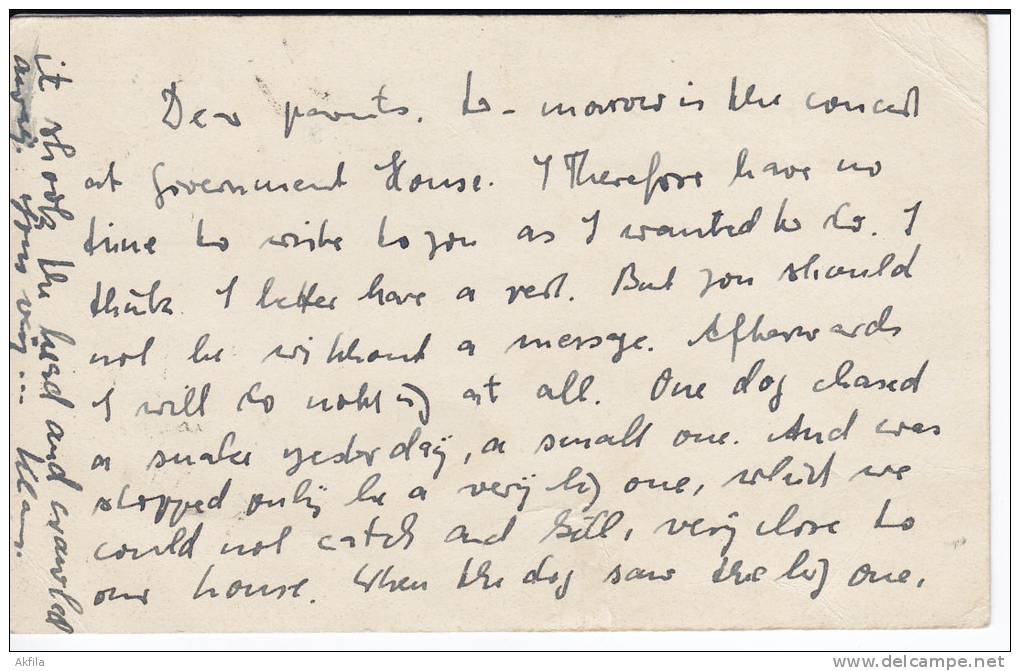 Dear parents. to-morrow is the concert
at Government House. I Therefore have no
time to write to you as I wanted to do. I
think I better have a rest. But you should
not be without a message. Afterwards
I will do nothing at all. One dog chased
a snake yesterday, a small one. And was
stopped only be a very big one, which we
could not catch and kill, very close to
our house. When the dog saw the big one,
it shook the head and crawled
away. Yours
Akfila
www.delcampe.net